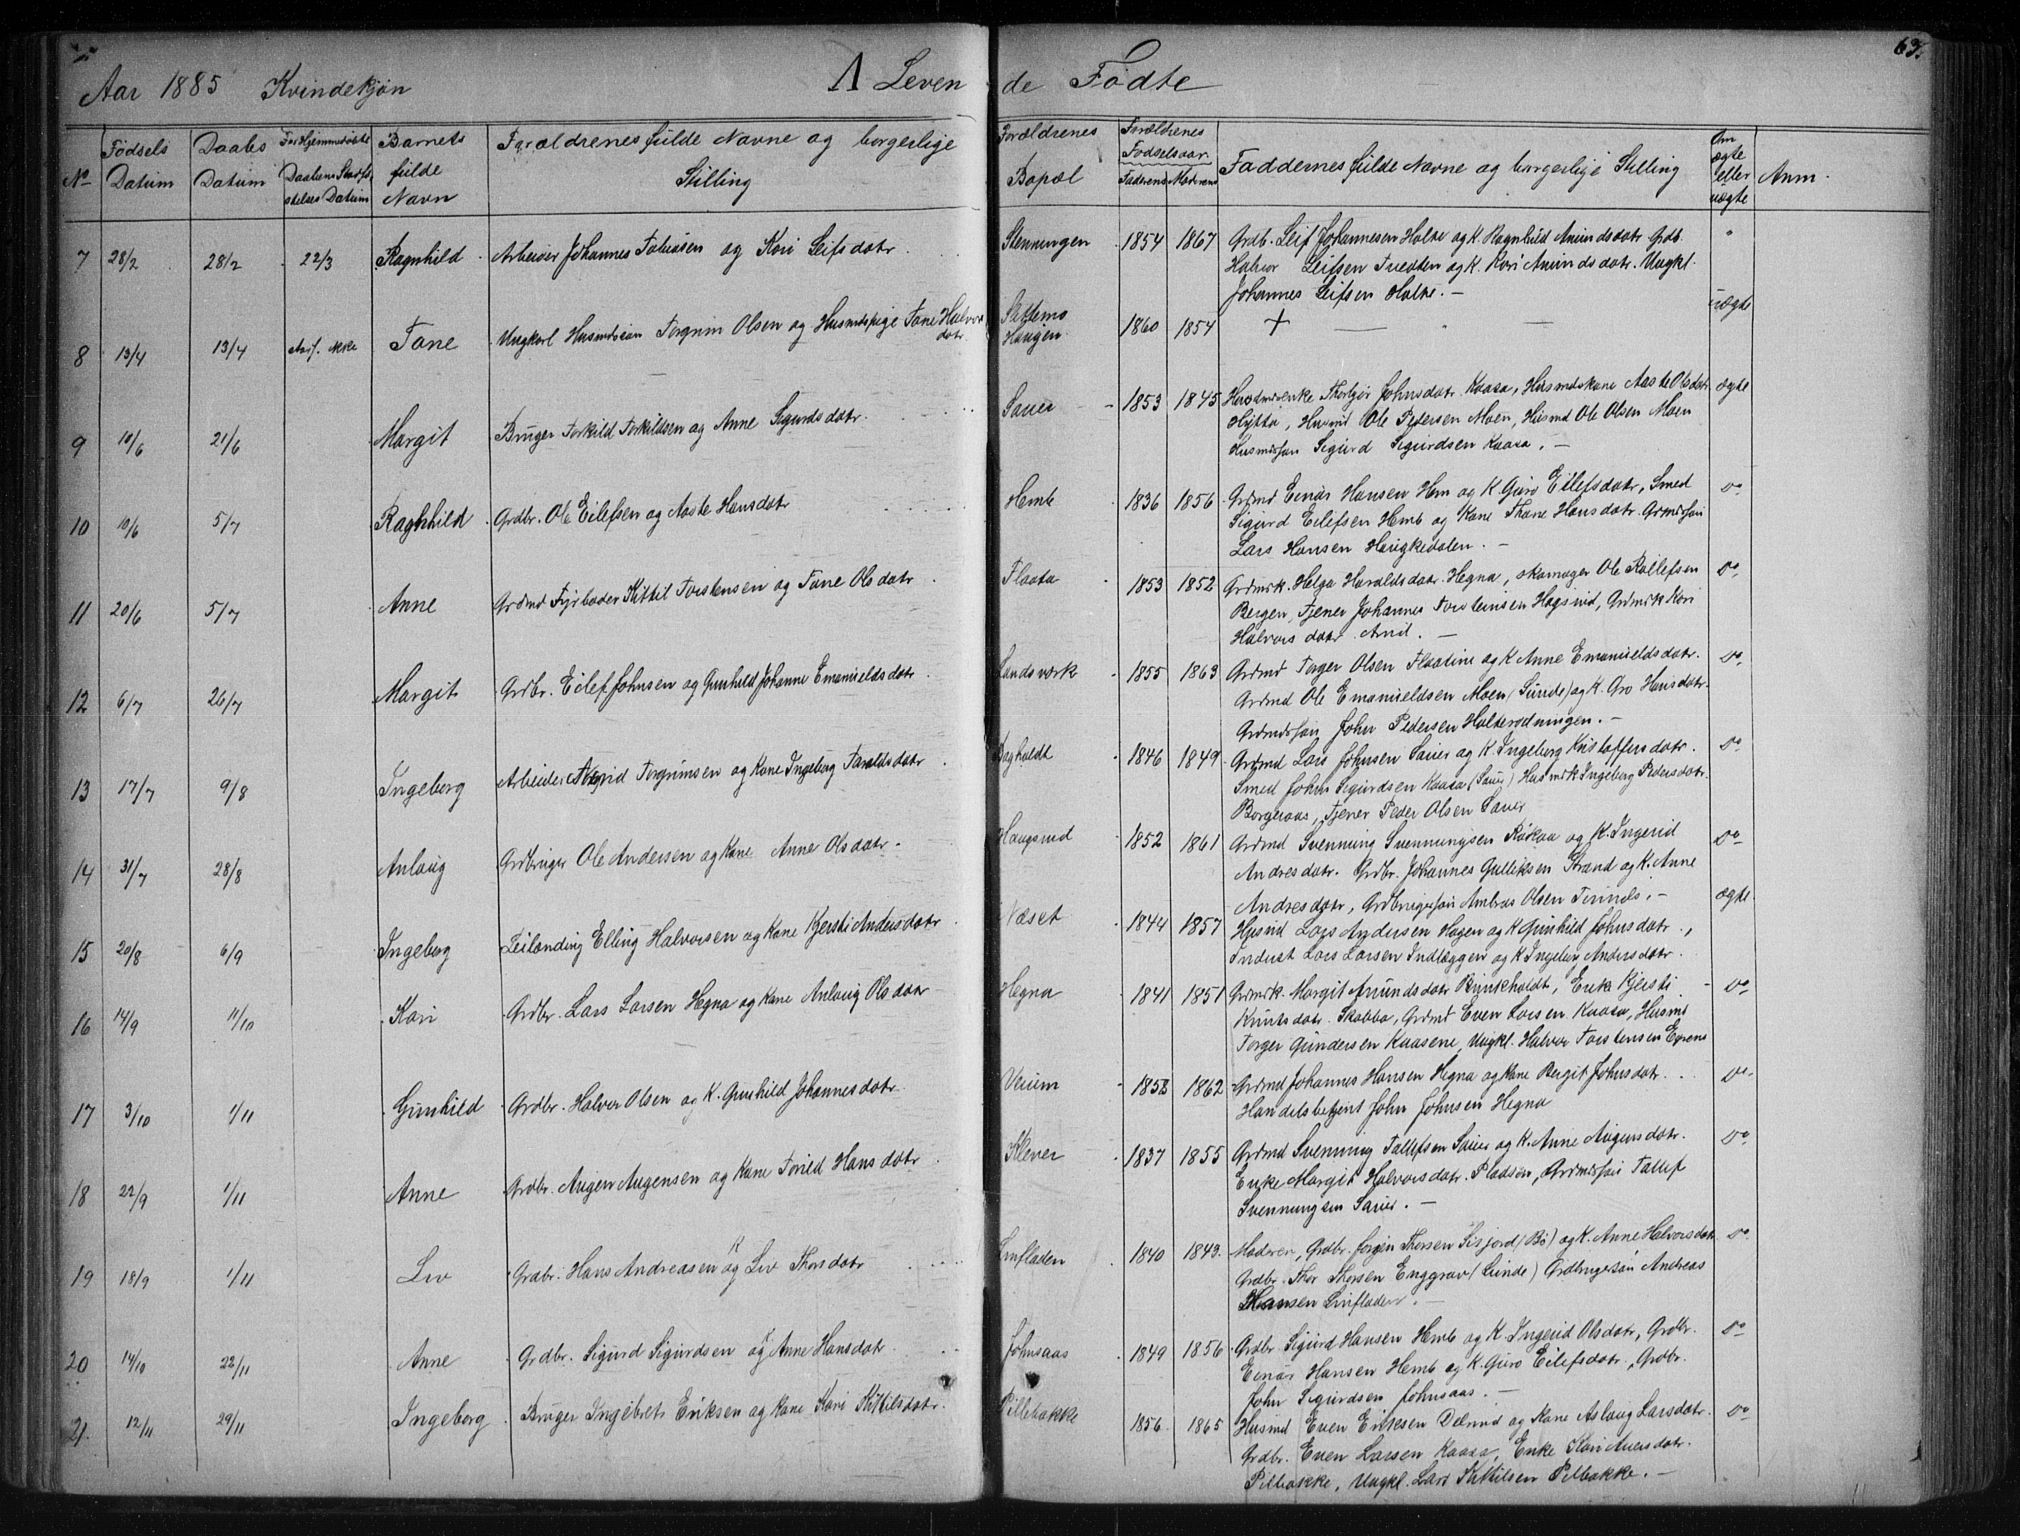 63.
Aar 1885 Kvindekjön A Leven de Födte
No
Födsels Datum
Daabs Datum
Daabens Stadfæstelses Datum
Barnets fulde Navn
Forældrenes fulde Navne og borgerlige Stilling
Forældrenes Bopæl
Forældrenes Födselsaar
Faderens Moderens
Faddernes fulde Navne og borgerlige Stilling
Om ægte eller uægte
Anm.
7 28/2 28/2 22/3 Ragnhild Arbeider Johannes Tobiasen og Kari Leifsdatr. Stenningen 1854 1867 Grdb. Leif Johannesen Holte og K. Ragnhild Anundsdatr. Grdb. "
Halvor Leifsen Tvedten og K. Kari Anundsdatr. Ungkl.
Johannes Leifsen Holte. —
8 13/4 13/4 Tone Ungkarl Husmdsøn Torgrim Olsen og Husmdspige Tone Halvors datr. Haugen 1860 1854 + — " — uægte
9 10/6 21/6 Margit Bruger Torkild Torkildsen og Anne Sigurdsdatr. Sauer 1853 1845 Husmdenke Thorbjør Johnsdatr. Kaasa, Husmdskone Aaste Olsdatr. ægte
Hytta, Husmd Ole Pedersen Moen, Husmd Ole Olsen Moen
Husmdsøn Sigurd Sigurdsen Kaasa. —
10 10/6 5/7 Ragnhild Grdbr. Ole Eilefsen og Aaste Hansdatr Hemb 1836 1856 Grdmd Einar Hansen Hem og K. Guro Eilefsdatr, Smed do
Sigurd Eilefsen Hemb og Kone Thone Hansdatr. Grdmdsøn
Lars Hansen Haugkedalen. —
11 20/6 5/7 Anne Grdmd Fyrbøder Kittil Torstensen og Tone Olsdatr Flaata 1853 1852 Grdmk. Helga Haraldsdatr. Hegna, skomager Ole Rollefsen do.
Bergen, Tjener Johannes Torsteinsen Hagsind, Grdmk Kari
Halvorsdatr. —
12 6/7 26/7 Margit Grdbr. Eilef Johnsen og Gunhild Johanne Emanuelsdatr. Landsværk 1855 1863 Grdmd Torger Olsen Flaatine og K. Anne Emanuelsdatr. do.
Grdmd Ole Emanuelsen Moen (Lunde) og K. Gro Hansdatr.
Grdmdsøn John Pedersen Holterødningen. —
13 17/7 9/8 Ingeborg Arbeider Torgrimsen og Kone Ingeborg Taraldsdatr 1846 1849 Grdmd Lars Johnsen Sauer og K. Ingeborg Kristoffersdatr. do
Smed John Sigurdsen Kaasa (Sauer) Husmdk Ingeborg Pedersdatr.
Borgeraas, Tjener Peder Olsen Sauer
14 31/7 28/8 Anlaug Grdbruger Ole Andersen og Kone Anne Olsdatr. Haugsind 1852 1861 Grdmd Svenning Svenningsen Røkaa og K. Ingerid do
Andresdatr. Grdbr. Johannes Gulliksen Strand og K. Anne
Andresdatr, Grdbrugersøn Andreas Olsen —
15 20/8 6/9 Ingeborg Leilænding Elling Halvorsen og Kone Kjersti Andersdatr Næset 1844 1857 Husmd Lars Andersen Hagen og K Gunhild Johnsdatr. ægte
Inderst Lars Larsen Indlæggen og K. Ingeborg Andersdatr.
16 14/9 11/10 Kari Grdbr. Lars Larsen Hegna og Kone Anlaug Olsdatr Hegna 1841 1851 Grdmk. Margit Anundsdatr Bjinkholdt, Enke Kjersti do.
Knutsdatr. Skobba, Grdmd Even Larsen Kaasa, Husmd
Torger Gundersen Kaasene, Ungkl. Halvor Torstensen
17 3/10 1/11 Gunhild Grdbr. Halvor Olsen og K. Gunhild Johannesdatr. Verum 1858 1862 Grdmd Johannes Hansen Hegna og Kone Bergit Johnsdatr. do.
Handelsbetjent John Johnsen Hegna
18 22/9 1/11 Anne Grdbr. Augen Augensen og Kone Toried Hansdatr Klever 1837 1855 Grdmd Svenning Tallefsen Sauer og K. Anne Augensdatr. do
Enke Margit Halvorsdatr. Pladsen, Grdmdsøn Tallef
Svenningsen Sauer. —
19 18/9 1/11 Liv Grdbr. Hans Andreasen og Liv Thorsdatr Linfladen 1840 1843. Moderen, Grdbr. Jørgen Thorsen Sisjord (Bö) og K. Anne Halvorsdatr do.
Grdbr. Thor Thorsen Enggrav (Lunde) Grdbrugersøn Andreas
Hansen Linfladen. —
20 14/10 22/11 Anne Grdbr. Sigurd Sigurdsen og Anne Hansdatr. Johnsaas 1849 1856 Grdbr. Sigurd Hansen Hemb og K. Ingerid Olsdatr, Grdbr. do
Einar Hansen Hemb og K. Guro Eilefsdatr, Grdbr.
John Sigurdsen Johnsaas. —
21. 12/11 29/11 Ingeborg Bruger Ingebret Eriksen og Kone Kari Kittilsdatr. Pillebakke 1856 1865 Husmd Even Eriksen og Kone Aslaug Larsdatr. do
Grdbr. Even Larsen Kaasa, Enke Kari Aversdatr.
Pilbakke, Ungkl. Lars Kittilsen Pilbakke. —